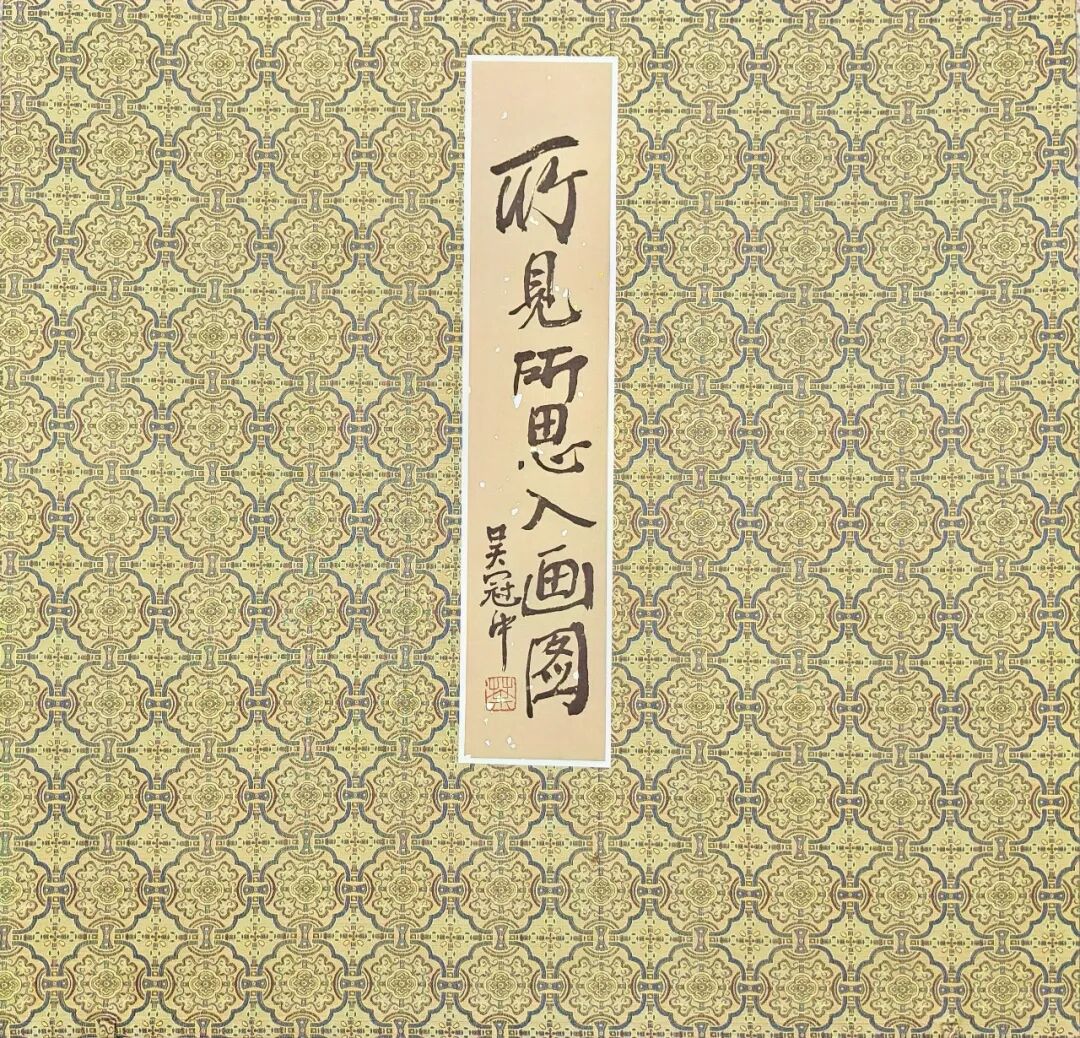 所見所思入画图
吴冠中